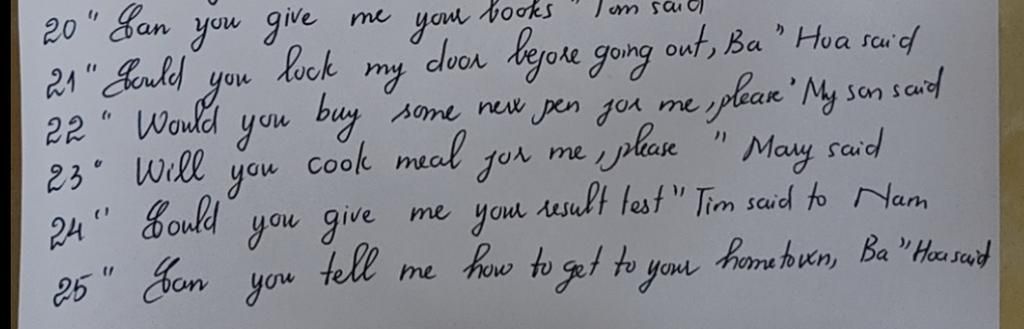 20 " Can you give me your books " Tom said
21 " Could you lock my door before going out, Ba " Hoa said
22 " Would you buy some new pen for me, please " My son said
23 " Will you cook meal for me, please " Mary said
24 " Could you give me your result test " Tim said to Nam
25 " Can you tell me how to get to your hometown, Ba " Hoa said